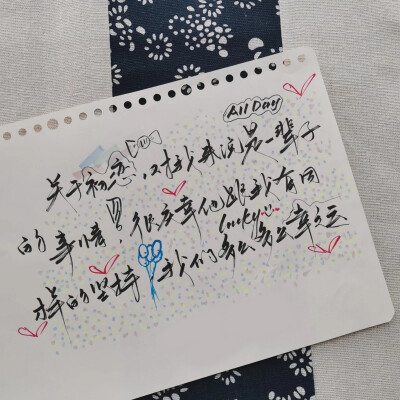 All Day
关于初恋，对我来说是一辈子
的事情！很庆幸他跟我有同
lucky
样的坚持，我们多么多么幸运